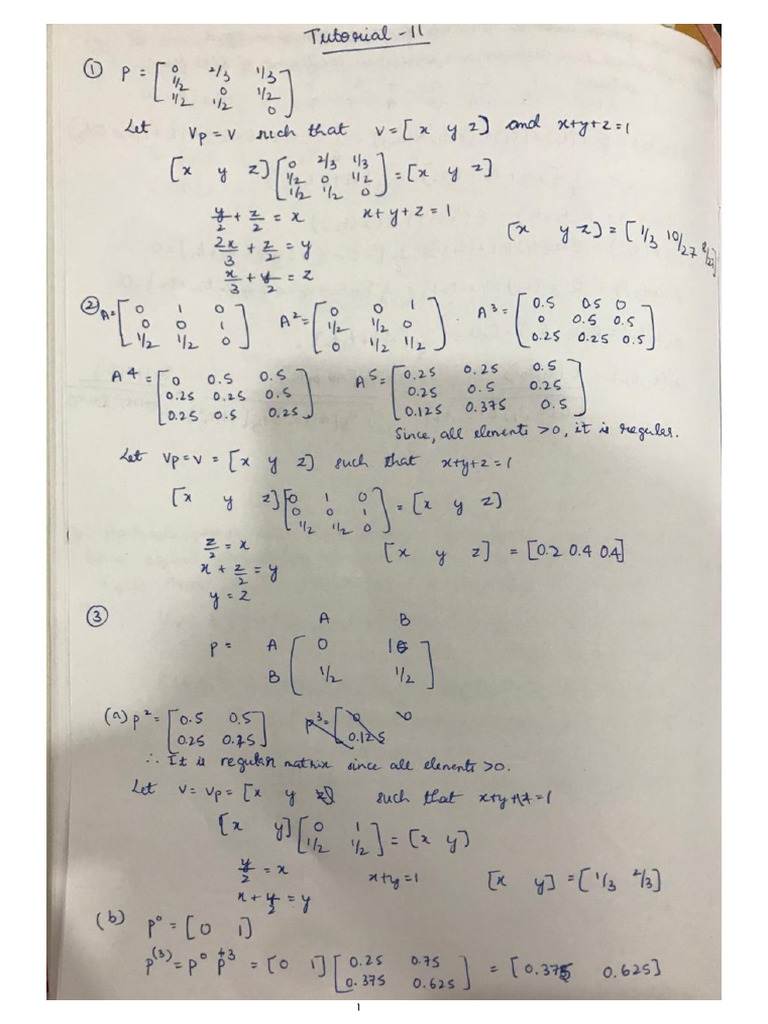 Tutorial - 11
① P = [0 2/3 1/3
1/2 0 1/2
1/2 1/2 0]
Let VP = V such that V = [x y z] and x+y+z=1
[x y z] [0 2/3 1/3
1/2 0 1/2
1/2 1/2 0] = [x y z]
y/2 + z/2 = x x+y+z=1
2x/3 + z/2 = y [x y z] = [1/3 10/27 8/27]
x/3 + y/2 = z
② A = [0 1 0
0 0 1
1/2 1/2 0] A² = [0 0 1
1/2 1/2 0
0 1/2 1/2] A³ = [0.5 0.5 0
0 0.5 0.5
0.25 0.25 0.5]
A⁴ = [0 0.5 0.5
0.25 0.25 0.5
0.25 0.5 0.25] A⁵ = [0.25 0.25 0.5
0.25 0.5 0.25
0.125 0.375 0.5]
Since, all elements >0, it is regular.
Let VP=V = [x y z] such that x+y+z=1
[x y z] [0 1 0
0 0 1
1/2 1/2 0] = [x y z]
z/2 = x [x y z] = [0.2 0.4 0.4]
x + z/2 = y
y = z
③ A B
P = A [0 1
B 1/2 1/2]
(a) P² = [0.5 0.5
0.25 0.75] P³ = [0 0
0.125
∴ It is regular matrix since all elements >0.
Let V = VP = [x y] such that x+y=1
[x y] [0 1
1/2 1/2] = [x y]
y/2 = x x+y=1 [x y] = [1/3 2/3]
x + y/2 = y
(b) P⁰ = [0 1]
P⁽³⁾ = P⁰ P³ = [0 1] [0.25 0.75
0.375 0.625] = [0.375 0.625]
1